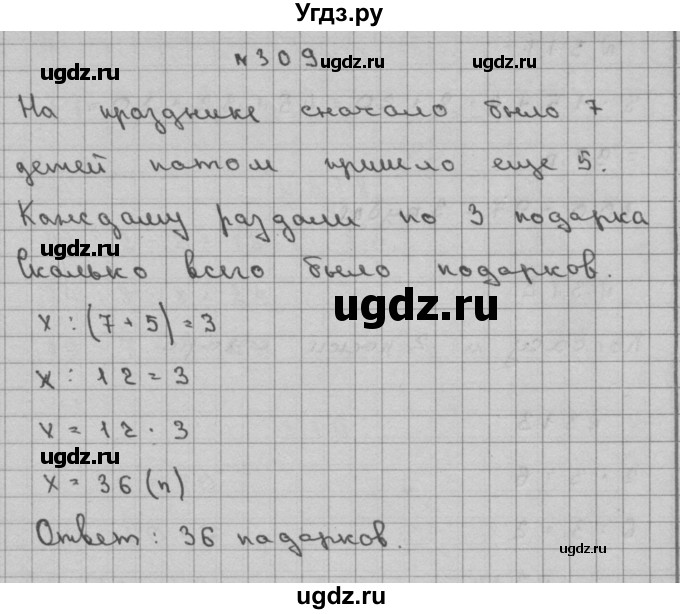 Угдз.ру
№ 309
ugdz.ru ugdz.ru ugdz.ru
На празднике сначало было 7
детей патом пришло еще 5.
Каждаму раздали по 3 подарка
ugdz.ru
Сколько всего было подарков.
ugdz.ru
x : (7 + 5) = 3
x : 12 = 3
x = 12 · 3
ugdz.ru
x = 36 (п)
Ответ : 36 падарков.
ugdz.ru
ugdz.ru